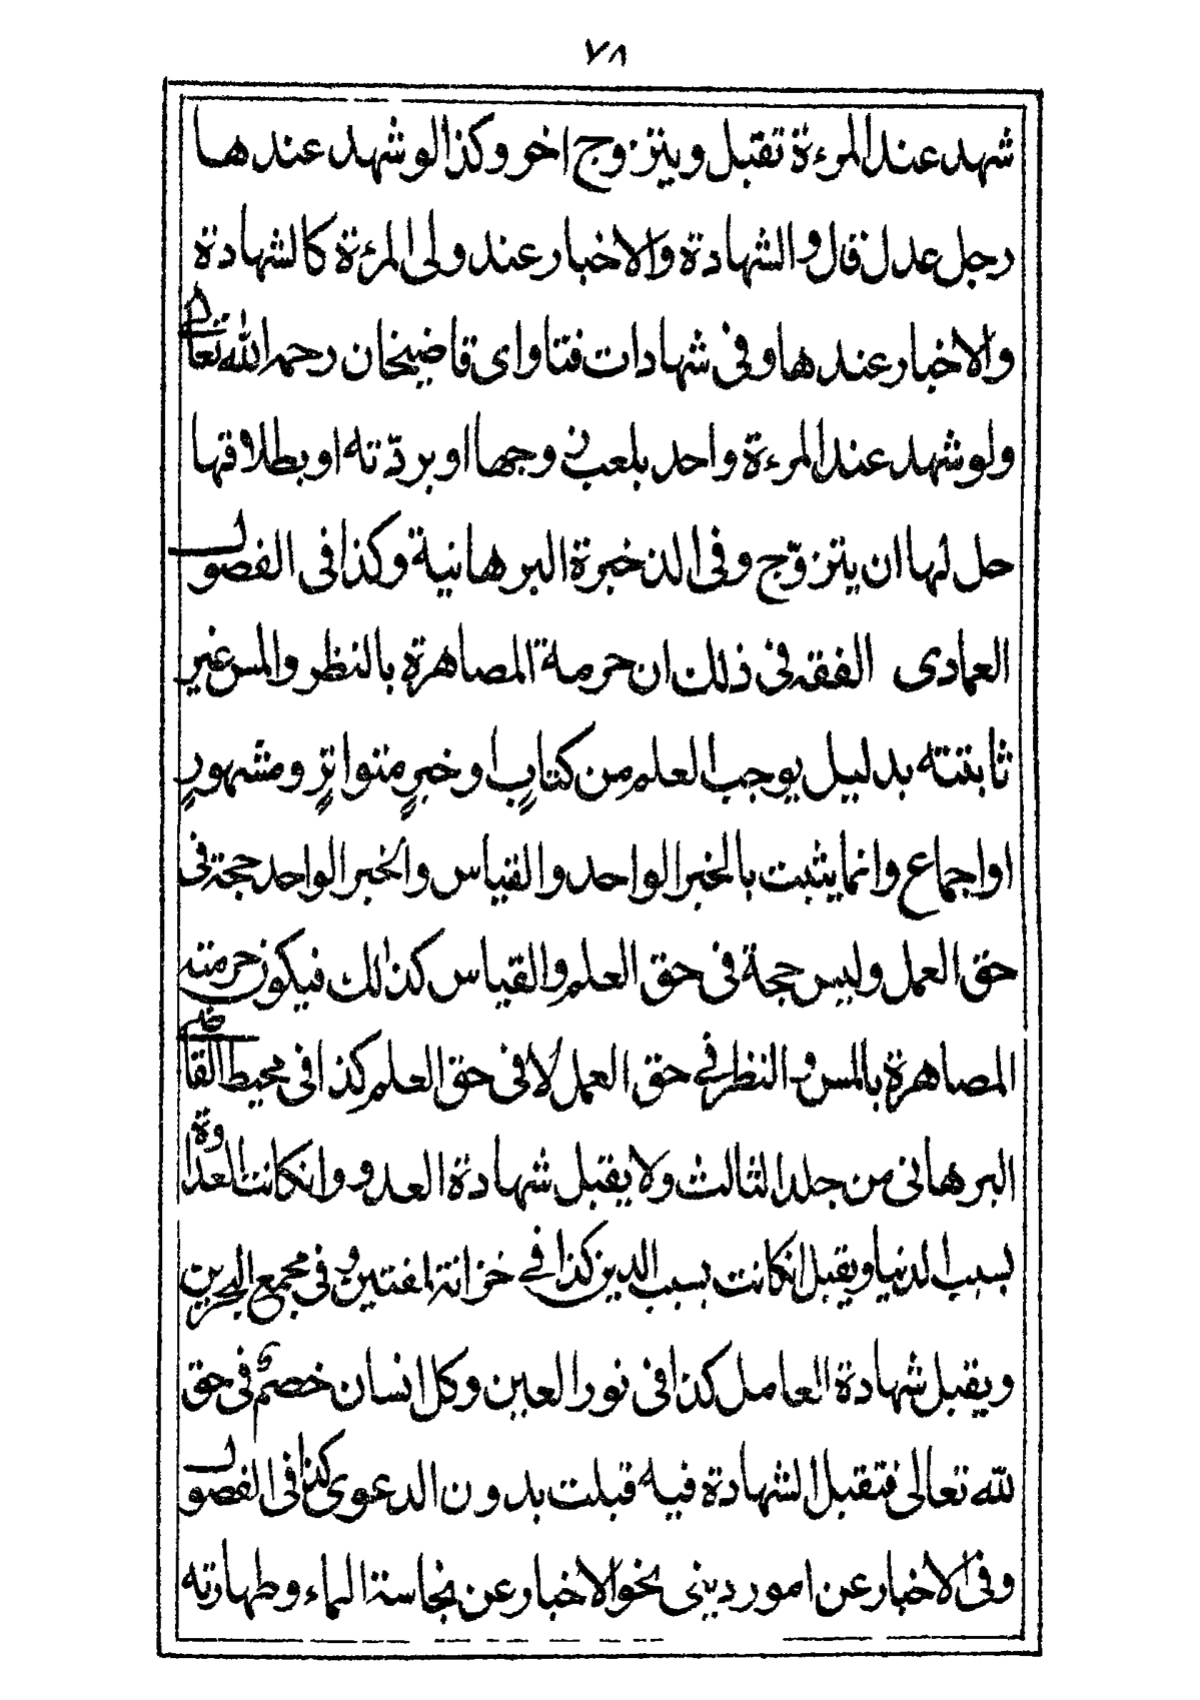 ٧٨
شهد عند المرءة تقبل ويتزوج اخر وكذا لو شهد عندها
رجل عدل قال والشهادة والاخبار عند ولى المرءة كالشهادة
والاخبار عندها وفى شهادات فتاواى قاضيخان رحمه الله تعالى
ولو شهد عند المرءة واحد بلعب زوجها او بردّته او بطلاقها
حل لها ان يتزوّج وفى الذخيرة البرهانية وكذا فى الفصول
العمادى الفقه فى ذلك ان حرمة المصاهرة بالنظر والمس غير
ثابتته بدليل يوجب العلم من كتابٍ او خبرٍ متواترٍ ومشهورٍ
او اجماع وانما يثبت بالخبر الواحد والقياس والخبر الواحد حجة فى
حق العمل وليس حجة فى حق العلم والقياس كذالك فيكون حرمته
المصاهرة بالمس والنظر فى حق العمل لا فى حق العلم كذا فى محيط القاضى
البرهانى من جلد الثالث ولا يقبل شهادة العدو وانكانت العداوة
بسبب الدنيا ويقبل انكانت بسبب الدين كذا فى خزانة المفتين وفى مجمع البحرين
ويقبل شهادة العامل كذا فى نور العين وكل انسان خصم فى حق
لله تعالى فتقبل الشهادة فيه قبلت بدون الدعوى كذا فى الفصول
وفى الاخبار عن امور دينى نحو الاخبار عن نجاسة الماء وطهارته